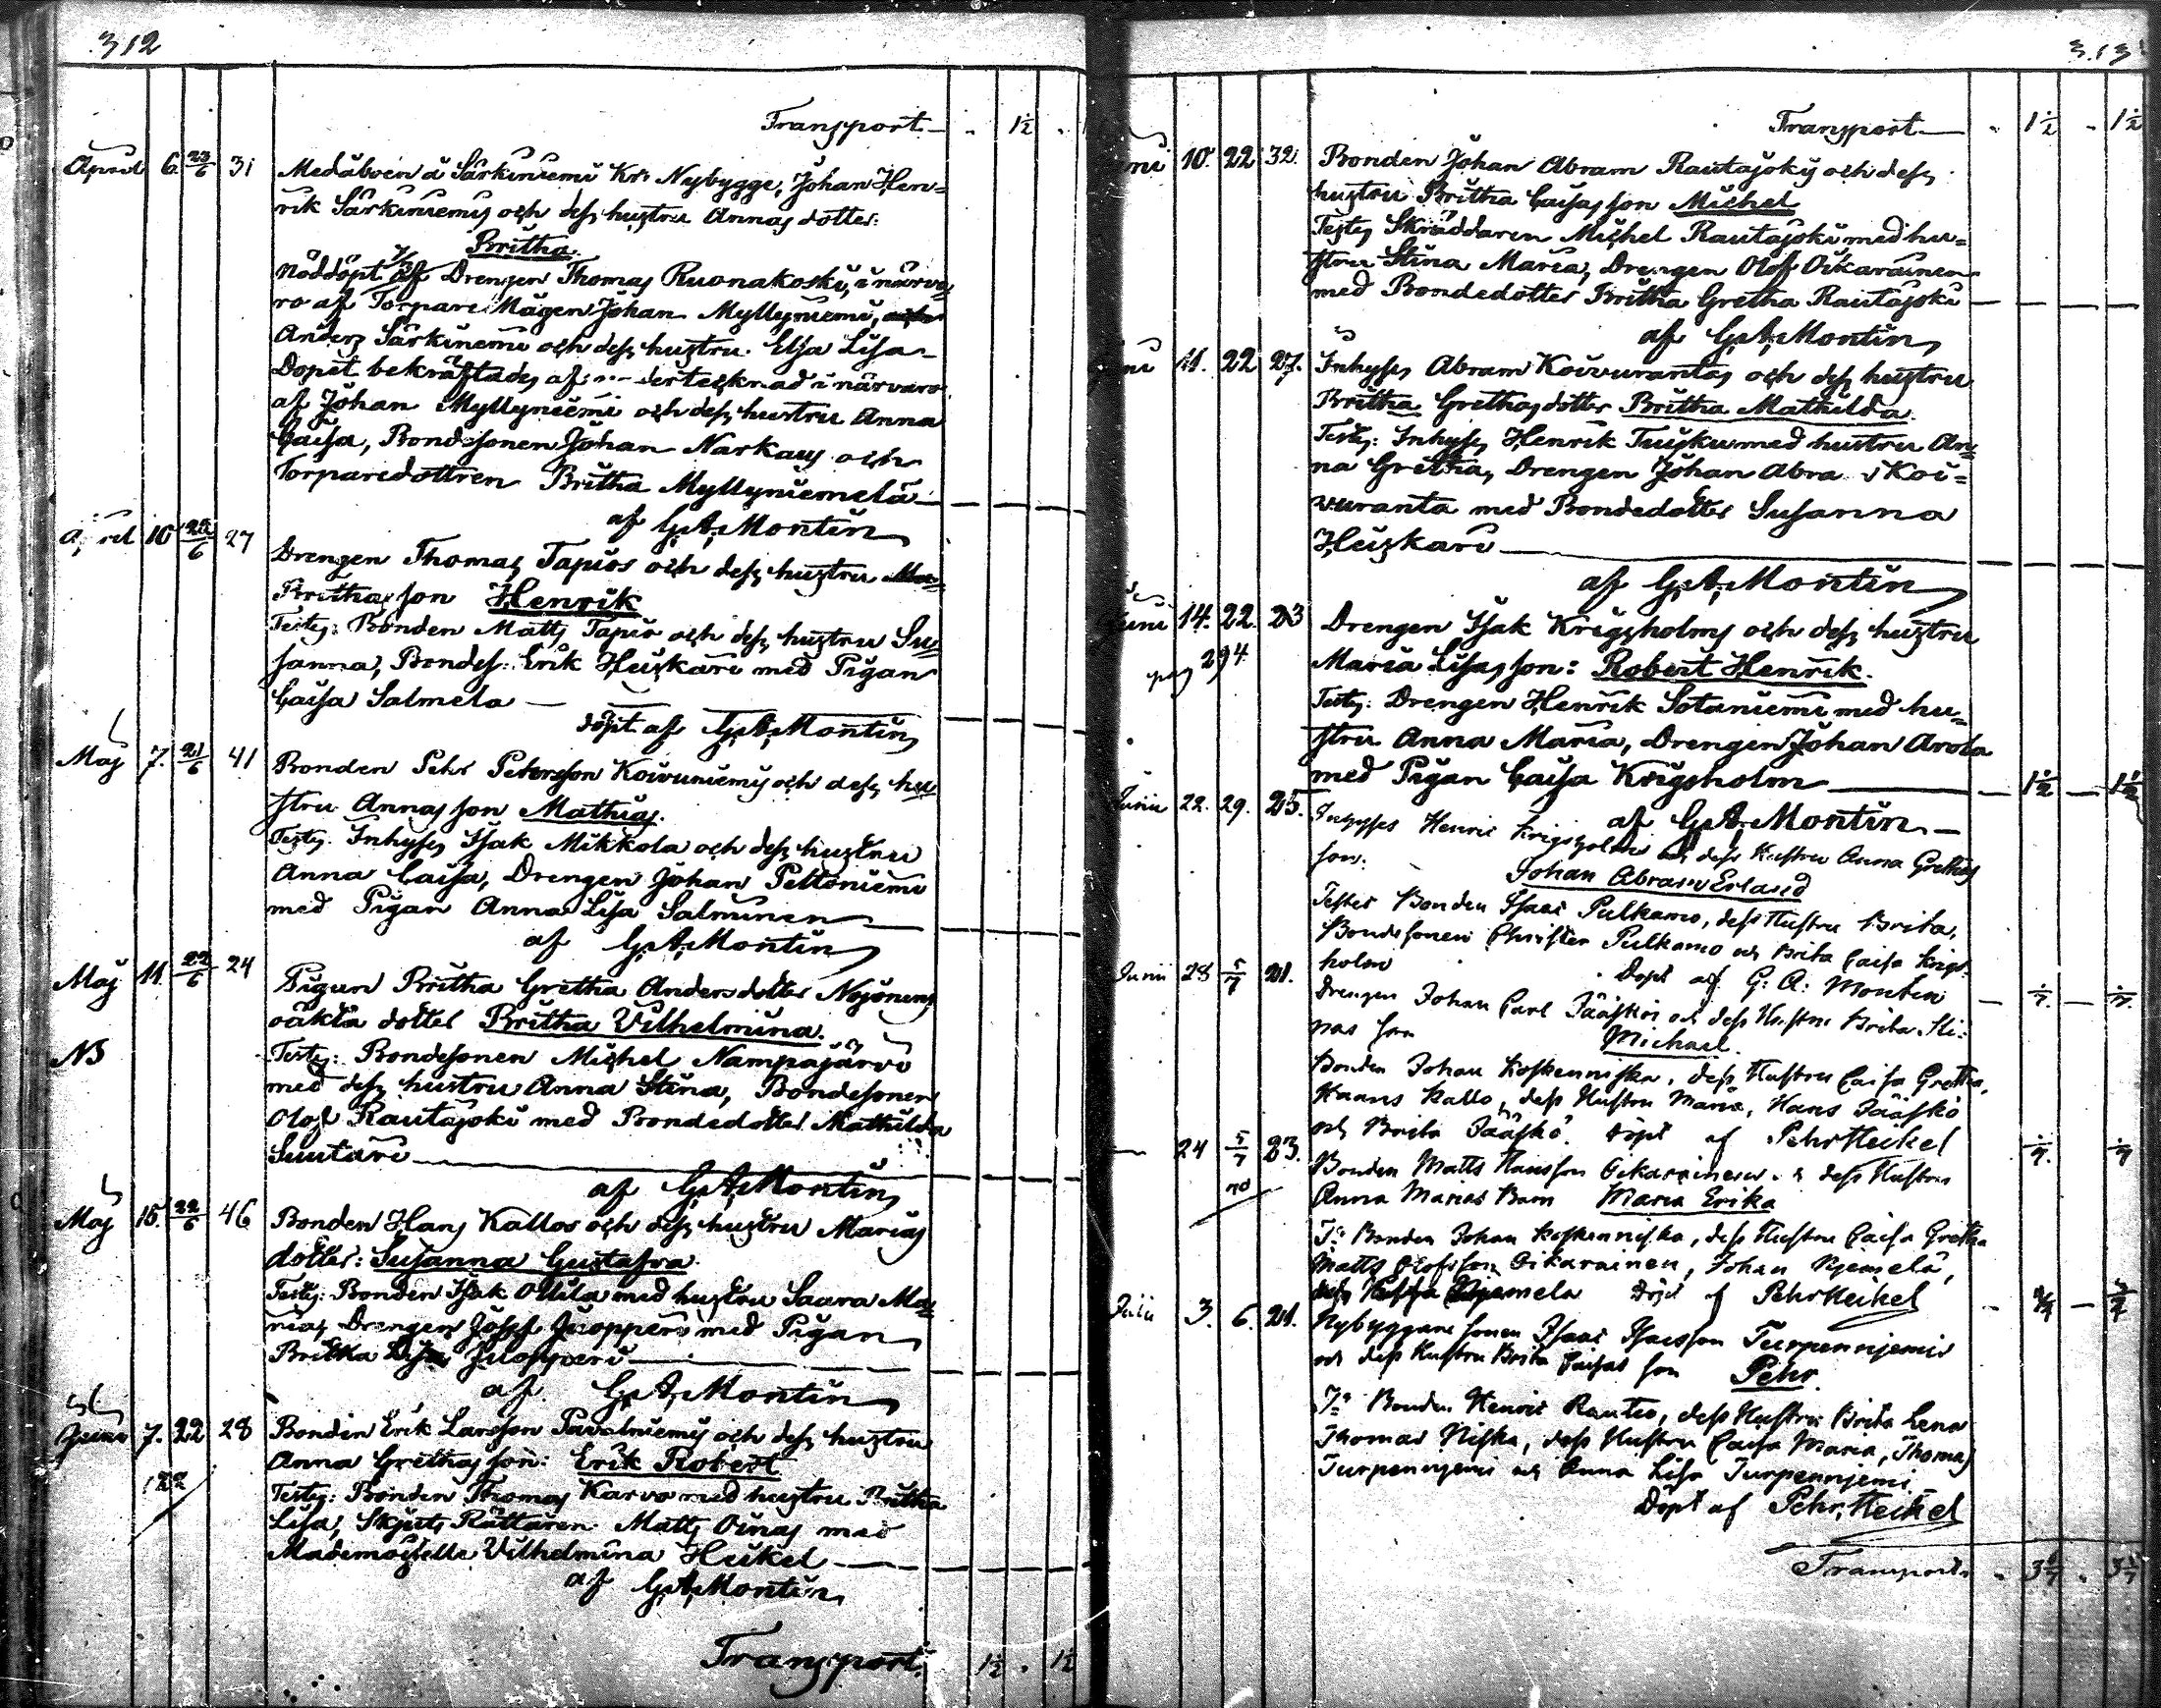 312
Transport - 1½
April 6. 23/6 31 Medåboen å Särkiniemi Krs Nybygge, Johan Hen=
rik Särkiniemis och dess hustru Annas dotter:
Britha.
Nöddöpt 7/4 af Drengen Thomas Ruonakoski, i närva=
ro af Torpare Mågen Johan Myllyniemi,
Anders Särkinemi och dess hustru Elsa Lisa -
Dopet bekräftades af undertecknad i närvaro
af Johan Myllyniemi och dess hustru Anna
Caisa, Bondesonen Johan Narkaus och
Torparedottren Britha Myllyniemelä
af G. A. Montin
April 10 22/6 27 Drengen Thomas Tapios och dess hustru
Brithas son Henrik
Testes: Bonden Matts Tapio och dess hustru Su=
sanna, Bondes: Erik Heiskari med Pigan
Caisa Salmela
döpt af G. A. Montin
Maj 7. 21/6 41 Bonden Pehr Petersson Koivuniemis och dess hu=
stru Annas son Mathias.
Testes Inhyses Isak Mikkola och dess hustru
Anna Caisa, Drengen Johan Peltoniemi
med Pigan Anna Lisa Salminen
af G. A. Montin
Maj 11. 22/6 24 Pigan Britha Gretha Andersdotter Nojonens
oäkta dotter Britha Vilhelmina.
NB Testes: Bondesonen Michel Nampajärvi
med dess hustru Anna Stina, Bondesonen
Olof Rautajoki med Bondedotter Mathilda
Suutari
af G. A. Montin
Maj 15. 22/6 46 Bonden Hans Kallos och dess hustru Marias
dotter: Susanna Gustafva
Testes: Bonden Isak Ollila med hustru Saara Ma=
ria, Drengen Josef Juopperi med Pigan
Britha Lisa Juopperi
af G. A. Montin
Juni 7. 22 28 Bonden Erik Larsson Pavalniemis och dess hustru
Anna Grethas son: Erik Robert
122 Testes: Bonden Thomas Karvo med hustru Britha
Lisa, Skjuts Rättaren Matts Oinas med
Mademoiselle Vilhelmina Heikel
af G. A. Montin
Transport: 1½ . 1½
313
Transport - 1½ - 1½
10. 22 32. Bonden Johan Abram Rautajokis och dess
hustru Britha Caisas son Michel
Testes Skräddaren Michel Rautajoki med hu=
stru Stina Maria, Drengen Olof Oikarainen
med Bondedotter Britha Gretha Rautajoki
af G. A. Montin
11. 22 27. Inhyses Abram Koivurantas och dess hustru
Britha Grethas dotter Britha Mathilda.
Testes: Inhyses Henrik Tuisku med hustru An=
na Gretha, Drengen Johan Abra Koi=
vuranta med Bondedotter Susanna
Heiskari
af G. A. Montin
Juni 14. 22. 23 Drengen Isak Krigsholms och dess hustru
pag 294 Maria Lisas son: Robert Henrik.
Testes: Drengen Henrik Sotaniemi med hu=
stru Anna Maria, Drengen Johan Arola
med Pigan Caisa Krigsholm 1½ - 1½
af G. A. Montin
Junii 22. 29. 25. Inhyses Henric Krigsholms och dess Hustru Anna Grethas
son. Johan Abram Erland
Testes Bonden Isaac Pulkamo, dess Hustru Brita,
Bondesonen Christer Pulkamo och Brita Caisa Krigs-
holm Döpt af G. A. Montin
Junii 23 5/7 21. Drengen Johan Carl Jääskös och dess Hustru Brita Sti=
nas son Michael.
Bonden Johan Koskenniska, dess Hustru Caisa Gretha,
Hans Kallo, dess Hustru Maria, Hans Jääskö
och Brita Jääskö. Döpt af Pehr Heikel
24 5/7 23. Bonden Matts Hansson Oikarainens och dess Hustru
Anna Marias Barn Maria Erika
Ts Bonden Johan Koskenniska, dess Hustru Caisa Gretha
Matts Olofsson Oikarainen, Johan Njemelä,
Njemela Döpt af Pehr Heikel
Julii 3. 6. 21. Nybyggare sonen Isaac Isacsson Turpennjemis
och dess Hustru Brita Caisas son Pehr.
Ts Bonden Henric Rautio, dess Hustru Brita Lena
Thomas Niska, dess Hustru Caisa Maria, Thomas
Turpennjemi och Anna Lisa Turpennjemi.
Döpt af Pehr Heikel
Transport